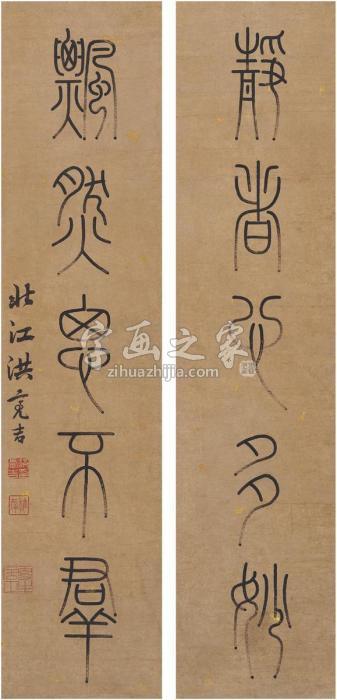 靜者心多妙
飄然思不羣
北江洪亮吉
字画之家
zihuazhijia.com